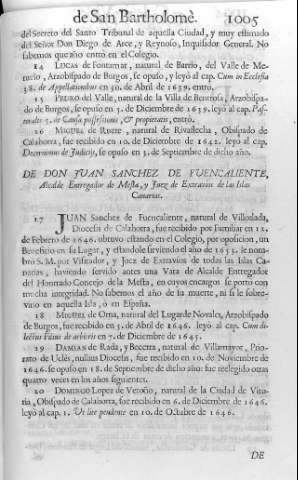 de San Bartholomè. 1005
del Secreto del Santo Tribunal de aquella Ciudad, y muy estimado
del Señor Don Diego de Arce, y Reynoso, Inquisidor General. No
sabemos que año entrò en el Colegio.
14 LUCAS de Fontemar, natural de Barrio, del Valle de Me-
nerio, Arzobispado de Burgos, se opuso, y leyò al cap. Cum in Ecclesia
38. de Appellationibus en 30. de Abril de 1639. entrò.
15 PEDRO del Valle, natural de la Villa de Beurosa, Arzobispa-
do de Burgos, se opuso en 5. de Diciembre de 1639. leyò al cap. Pas-
toralis 5. de Causa possessionis, & proprietatis, entrò.
16 MIGUEL de Ruete, natural de Rivaflecha, Obispado de
Calahorra, fue recibido en 10. de Diciembre de 1642. leyò al cap.
de Judicijs, se opuso en 3. de Septiembre de dicho año.
DE DON JUAN SANCHEZ DE FUENCALIENTE,
Alcalde Entregador de Mesta, y Juez de Extravios de las Islas
Canarias.
17 JUAN Sanchez de Fuencaliente, natural de Villoslada,
Diocesis de Calahorra, fue recibido por Familiar en 12.
de Febrero de 1646. obtuvo estando en el Colegio, por oposicion, un
Beneficio en su Lugar, y estandole sirviendo el año de 1655. le nom-
bro S. M. por Visitador, y Juez de Extravios de todas las Islas Ca-
narias, haviendo servido antes una Vara de Alcalde Entregador
del Honrado Concejo de la Mesta, en cuyos encargos se portò con
mucha integridad. No sabemos el año de la muerte, ni si le sobre-
vino en aquella Isla, ò en España.
18 MIGUEL de Oma, natural del Lugar de Novales, Arzobispado
de Burgos, fue recibido en 5. de Abril de 1646. leyò al cap. Cum di-
lectus Filius de arbitris en 7. de Diciembre de 1645.
19 DAMIAN de Rada, y Becerra, natural de Villamayor, Prio-
rato de Uclès, nullius Diocesis, fue recibido en 10. de Noviembre de
1646. se opuso en 18. de Septiembre de dicho año: fue reelegido otras
quatro veces en los años siguientes.
20 DOMINGO Lopez de Vetoño, natural de la Ciudad de Vito-
ria, Obispado de Calahorra, fue recibido en 6. de Diciembre de 1646.
leyò al cap. 1. Ut lite pendente en 10. de Octubre de 1646.
DE